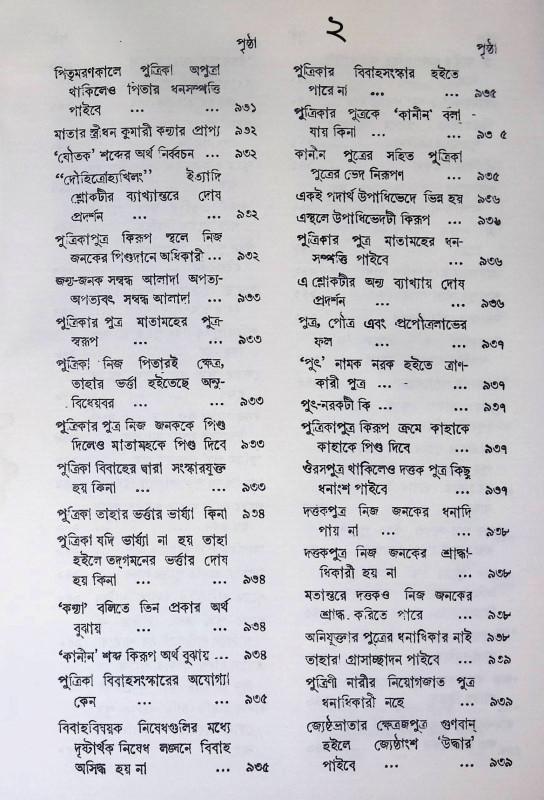 ২
পৃষ্ঠা
পিতৃমরণকালে পুত্রিকা অপুত্রা
থাকিলেও পিতার ধনসম্পত্তি
পাইবে ... ... ৯৩১
মাতার স্ত্রীধন কুমারী কন্যার প্রাপ্য ৯৩২
‘যৌতক’ শব্দের অর্থ নির্ব্বচন ... ৯৩২
“দৌহিত্রোহ্যখিলং” ইত্যাদি
শ্লোকটীর ব্যাখ্যান্তরে দোষ
প্রদর্শন ... ... ৯৩২
পুত্রিকাপুত্র কিরূপ স্থলে নিজ
জনকের পিণ্ডদানে অধিকারী ... ৯৩২
জন্য-জনক সম্বন্ধ আলাদা অপত্য-
অপত্যবৎ সম্বন্ধ আলাদা ... ৯৩৩
পুত্রিকার পুত্র মাতামহের পুত্র-
স্বরূপ ... ... ৯৩৩
পুত্রিকা নিজ পিতারই ক্ষেত্র,
তাহার ভর্ত্তা হইতেছে অনু-
বিধেয়বর ... ... ৯৩৩
পুত্রিকার পুত্র নিজ জনককে পিণ্ড
দিলেও মাতামহকে পিণ্ড দিবে ৯৩৩
পুত্রিকা বিবাহের দ্বারা সংস্কারযুক্ত
হয় কিনা ... ... ৯৩৩
পুত্রিকা তাহার ভর্ত্তার ভার্য্যা কিনা ৯৩৪
পুত্রিকা যদি ভার্য্যা না হয় তাহা
হইলে তদ্‌গমনের ভর্ত্তার দোষ
হয় কিনা ... ... ৯৩৪
‘কন্যা’ বলিতে তিন প্রকার অর্থ
বুঝায় ... ... ৯৩৪
‘কানীন’ শব্দ কিরূপ অর্থ বুঝায় ... ৯৩৪
পুত্রিকা বিবাহসংস্কারের অযোগ্যা
কেন ... ... ৯৩৫
বিবাহবিষয়ক নিষেধগুলির মধ্যে
দৃষ্টার্থক নিষেধ লঙ্ঘনে বিবাহ
অসিদ্ধ হয় না ... ৯৩৫
পৃষ্ঠা
পুত্রিকার বিবাহসংস্কার হইতে
পারে না ... ... ৯৩৫
পুত্রিকার পুত্রকে ‘কানীন’ বলা -
যায় কিনা ... ... ৯৩ ৫
কানীন পুত্রের সহিত পুত্রিকা
পুত্রের ভেদ নিরূপণ ... ৯৩৫
একই পদার্থ উপাধিভেদে ভিন্ন হয় ৯৩৬
এস্থলে উপাধিভেদটী কিরূপ ... ৯৩৬
পুত্রিকার পুত্র মাতামহের ধন-
সম্পত্তি পাইবে ... ৯৩৬
এ শ্লোকটীর অন্য ব্যাখ্যায় দোষ
প্রদর্শন ... ... ৯৩৬
পুত্র, পৌত্র এবং প্রপৌত্রলাভের
ফল ... ... ৯৩৭
‘পুৎ’ নামক নরক হইতে ত্রাণ-
কারী পুত্র ... - ৯৩৭
পুৎ-নরকটী কি ... ... ৯৩৭
পুত্রিকাপুত্র কিরূপ ক্রমে কাহাকে
কাহাকে পিণ্ড দিবে ... ৯৩৭
ঔরসপুত্র থাকিলেও দত্তক পুত্র কিছু
ধনাংশ পাইবে ... ৯৩৭
দত্তকপুত্র নিজ জনকের ধনাদি
পায় না ... ... ৯৩৮
দত্তকপুত্র নিজ জনকের শ্রাদ্ধা-
ধিকারী হয় না ... ৯৩৮
মতান্তরে দত্তকও নিজ জনকের
শ্রাদ্ধ করিতে পারে ... ৯৩৮
অনিযুক্তার পুত্রের ধনাধিকার নাই ৯৩৮
তাহারা গ্রাসাচ্ছাদন পাইবে ... ৯৩৯
পুত্রিণী নারীর নিয়োগজাত পুত্র
ধনাধিকারী নহে ... ৯৩৯
জ্যেষ্ঠভ্রাতার ক্ষেত্রজপুত্র গুণবান্
হইলে জ্যেষ্ঠাংশ ‘উদ্ধার’
পাইবে ... ... ৯৩৯